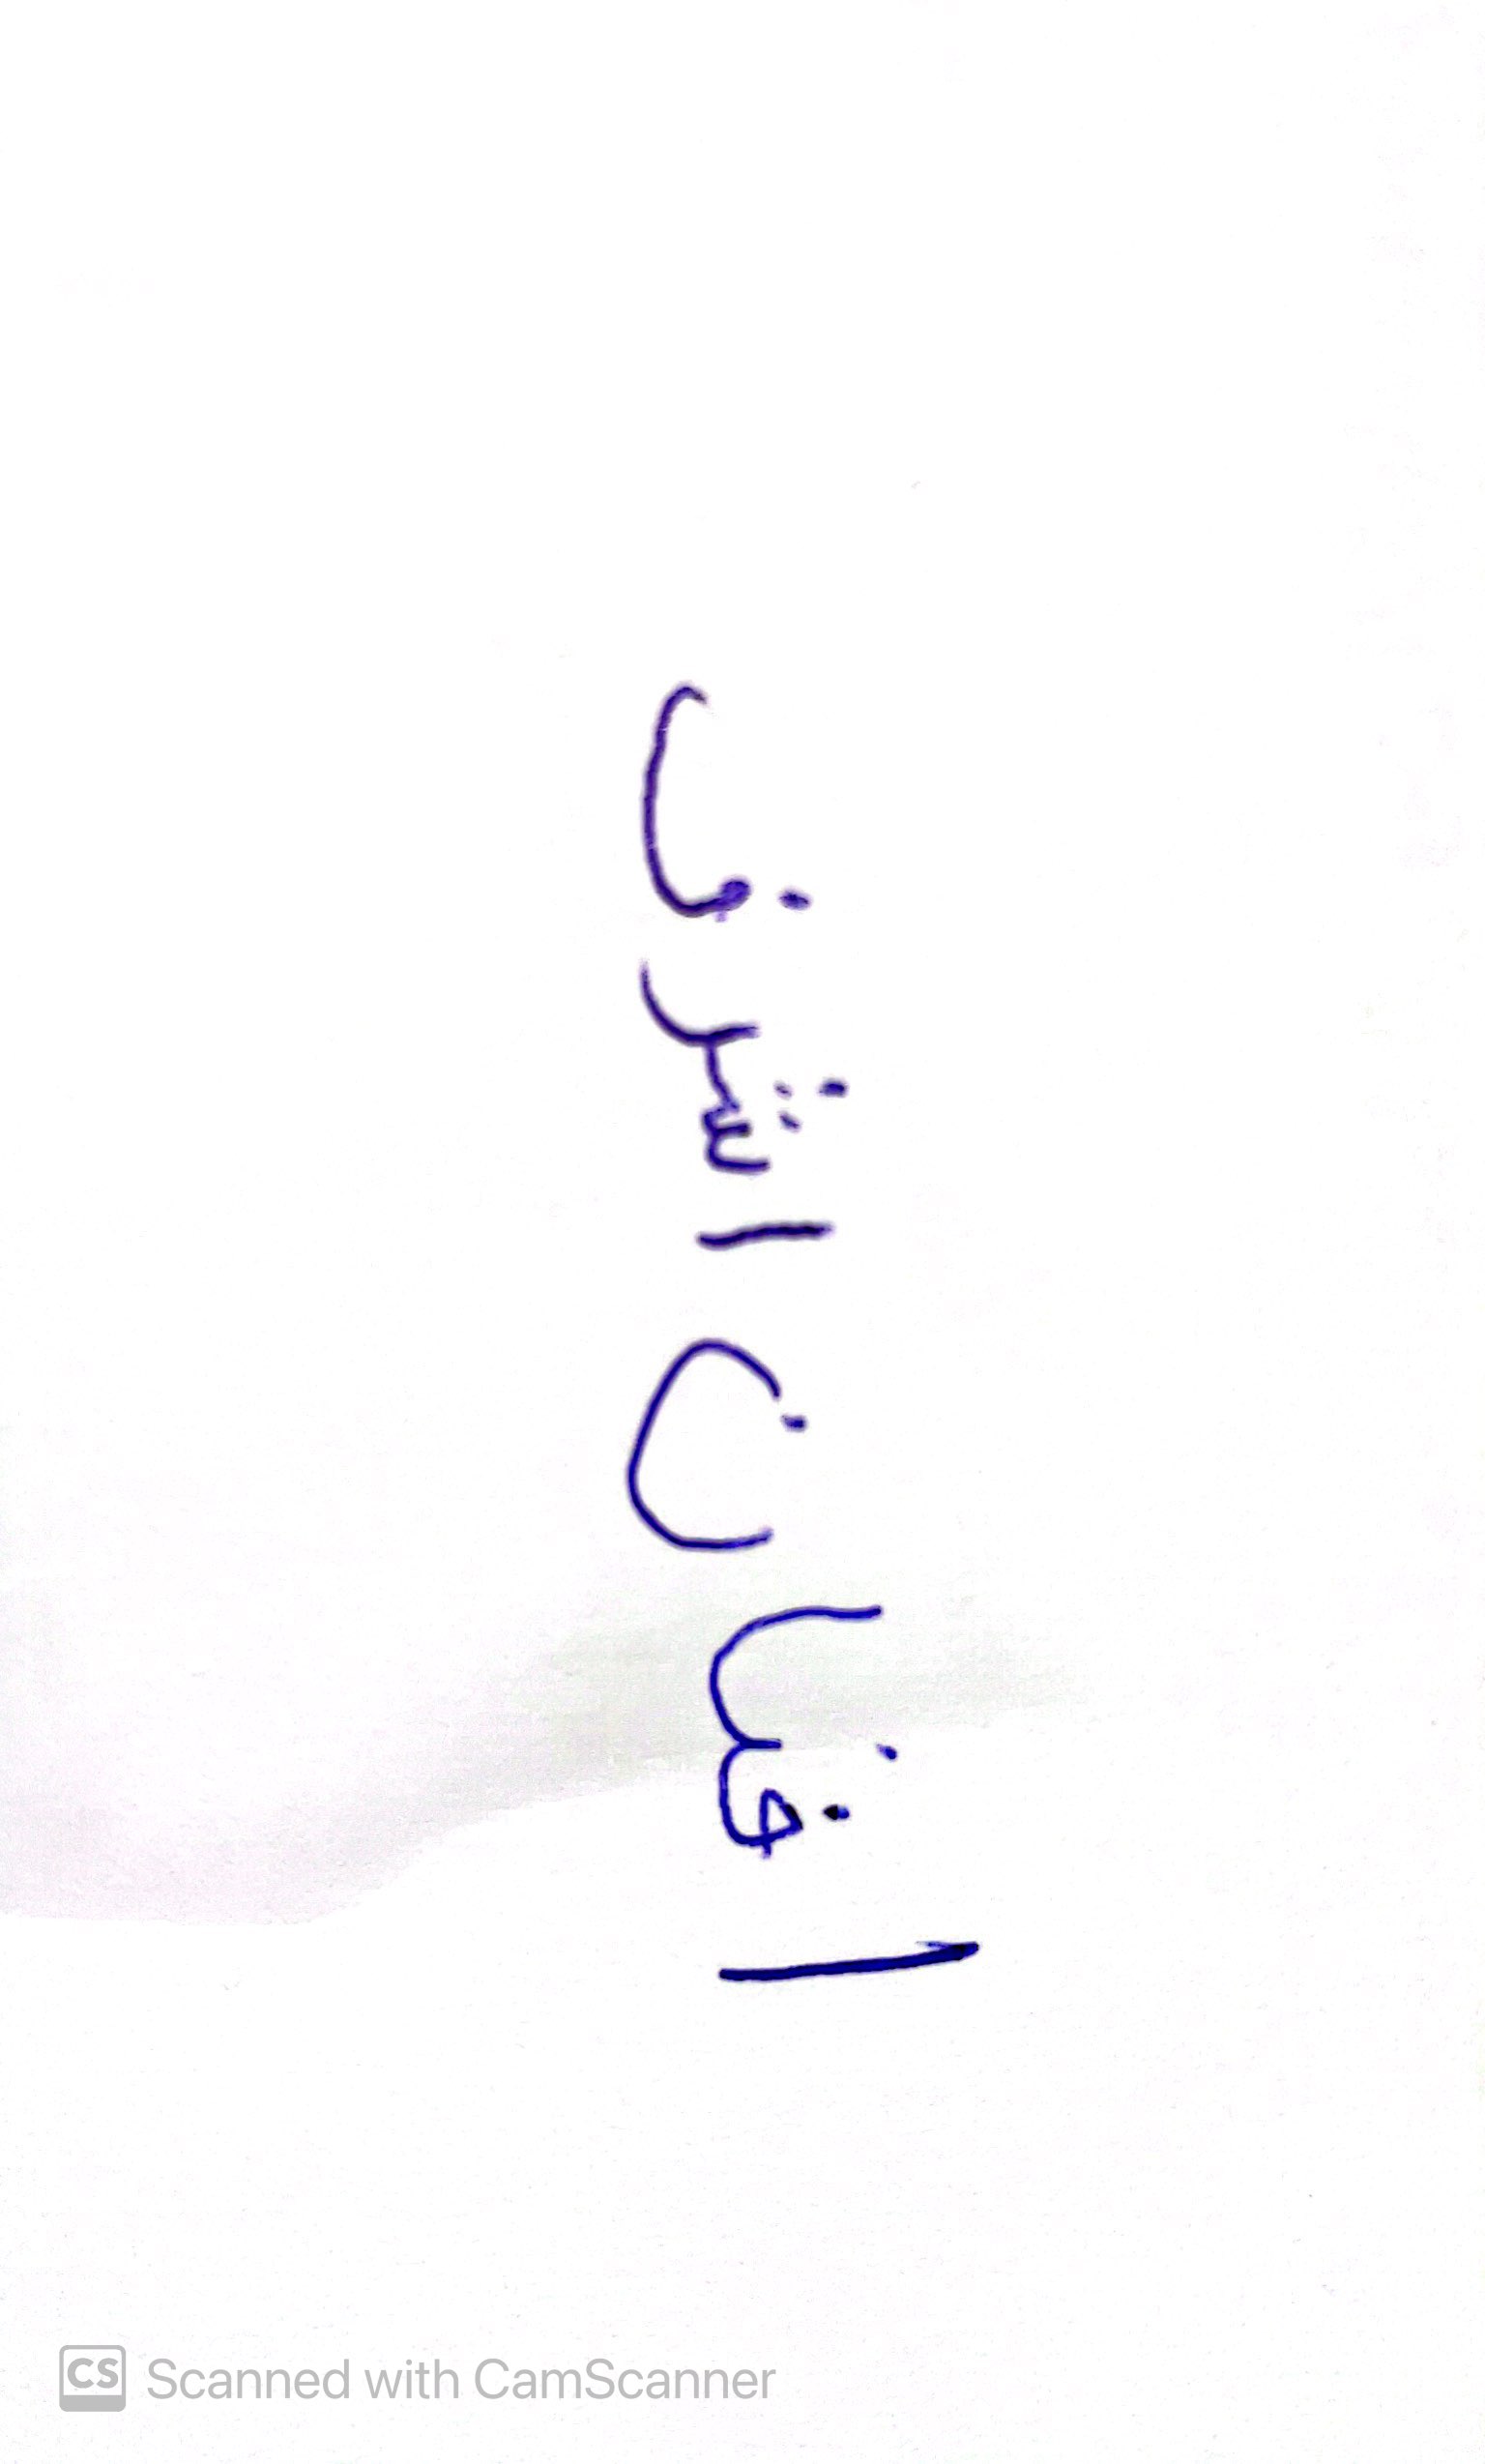 افنان اشرف
Scanned with CamScanner
CS